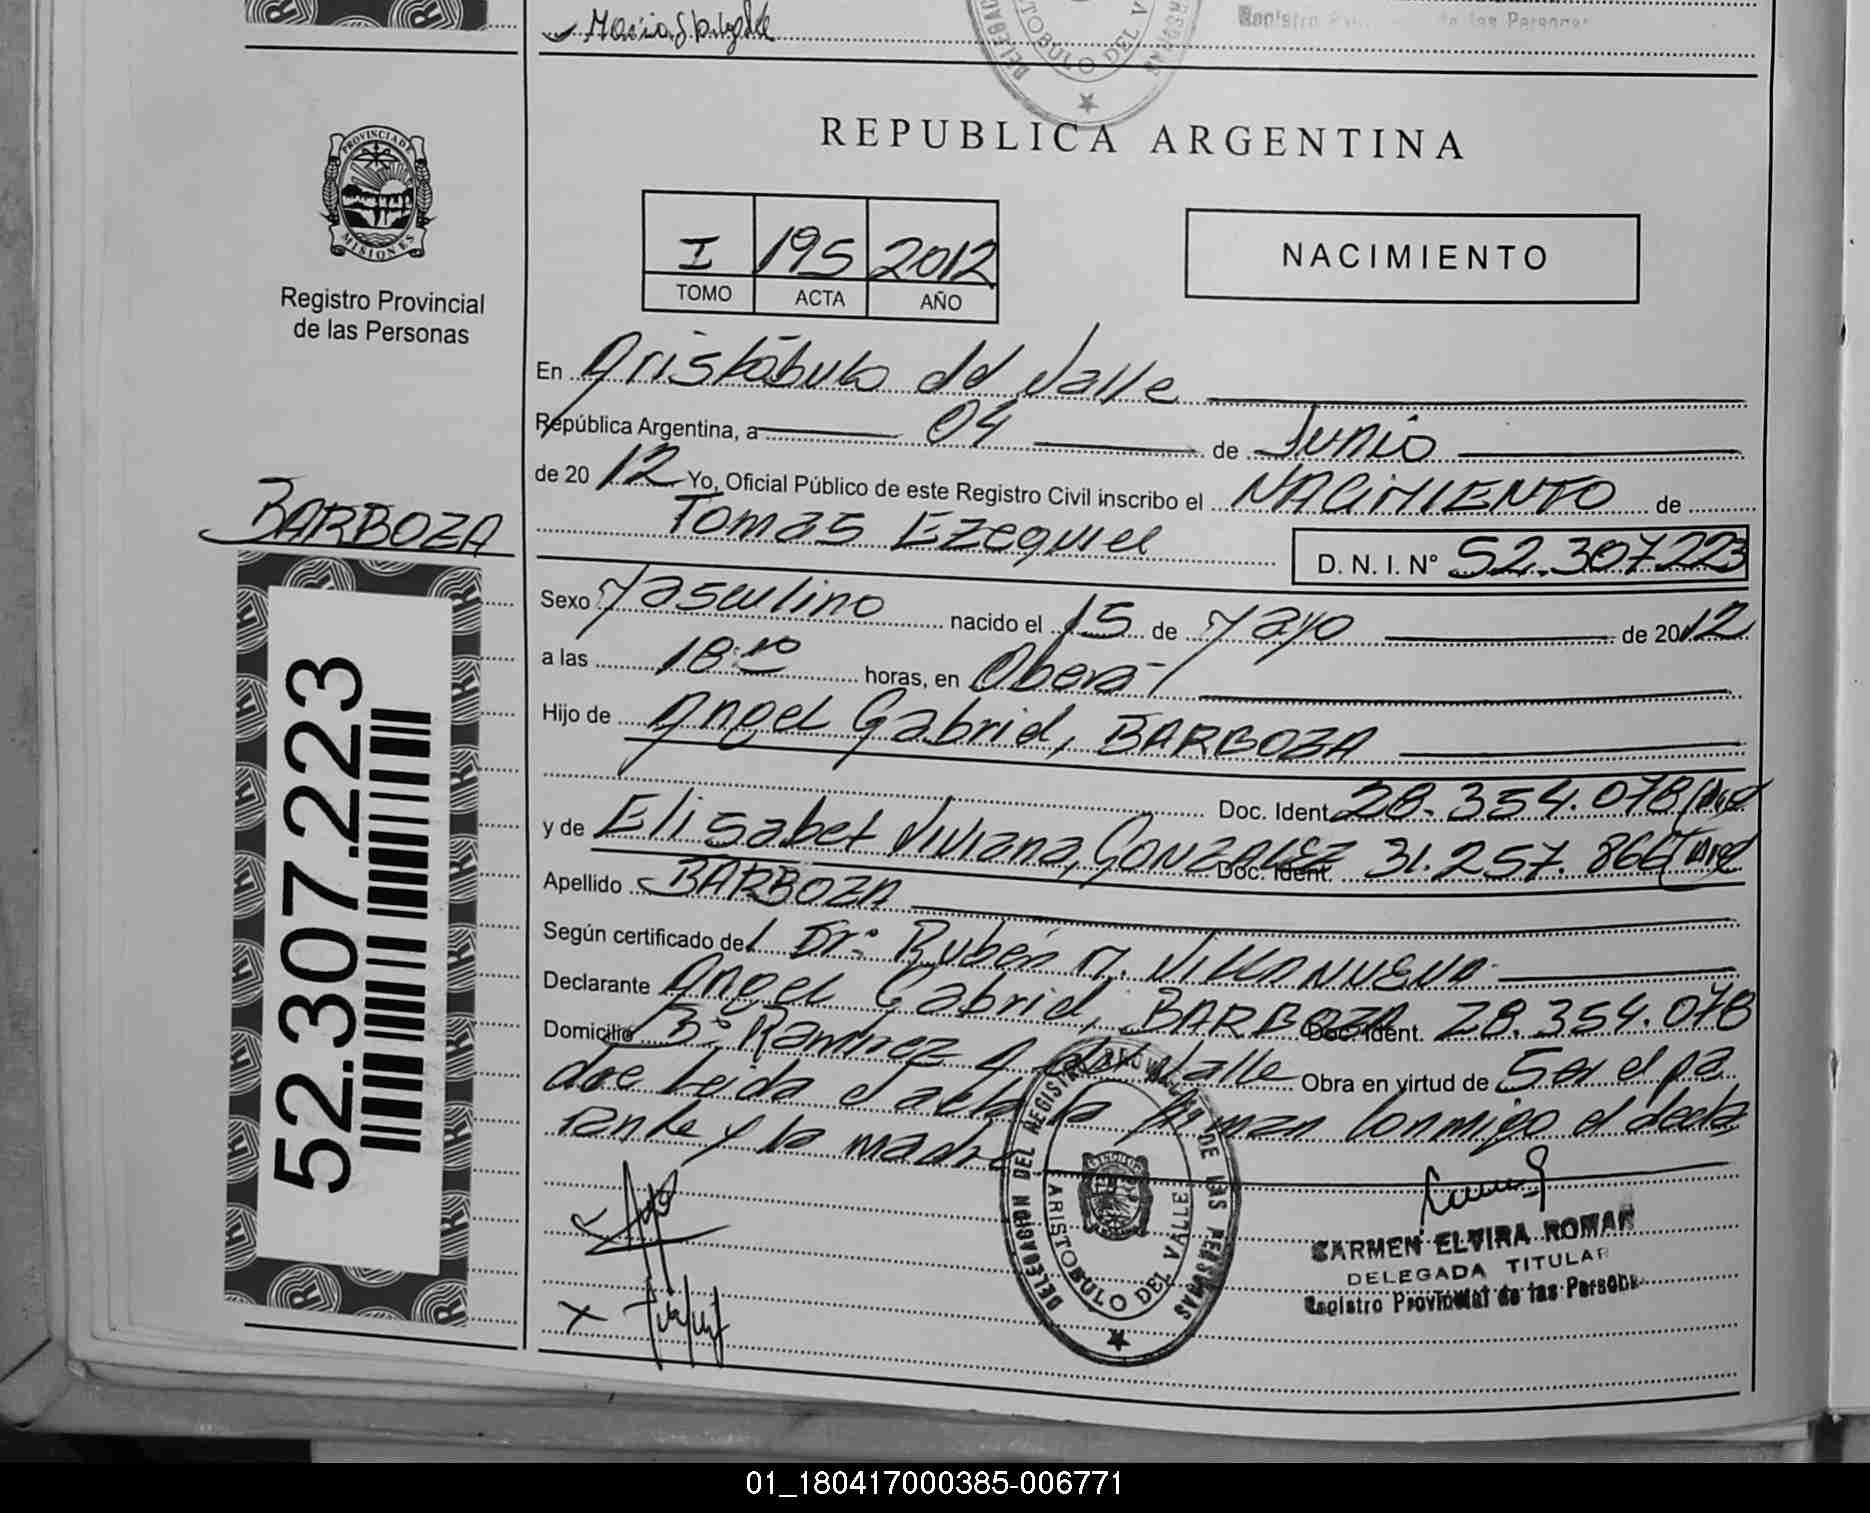 REPUBLICA ARGENTINA
PROVINCIA DE
MISIONES
Registro Provincial
de las Personas
I 195 2012
TOMO ACTA AÑO
NACIMIENTO
En Aristóbulo del Valle
República Argentina, a 04 de Junio
de 2012 Yo, Oficial Público de este Registro Civil inscribo el NACIMIENTO de
BARBOZA
Tomas Ezequiel
D. N. I. Nº 52.307.223
Sexo Masculino nacido el 15 de Mayo de 2012
a las 18:10 horas, en Oberá
Hijo de Angel Gabriel, BARBOZA
Doc. Ident. 28.354.078
y de Elisabet Viviana, GONZALEZ Doc. Ident. 31.257.866
Apellido BARBOZA
Según certificado del Dr. Rubén A. VILLANUEVA
Declarante Angel Gabriel, BARBOZA Doc. Ident. 28.354.078
Domicilio Bº Ramirez A. del Valle Obra en virtud de Ser el pa
dre Leida el acta la firman conmigo el decla
rante y la madre
52.307.223
DELEGACION DEL REGISTRO PROVINCIAL DE LAS PERSONAS
ARISTOBULO DEL VALLE
CARMEN ELVIRA ROMAN
DELEGADA TITULAR
Registro Provincial de las Personas
01_180417000385-006771